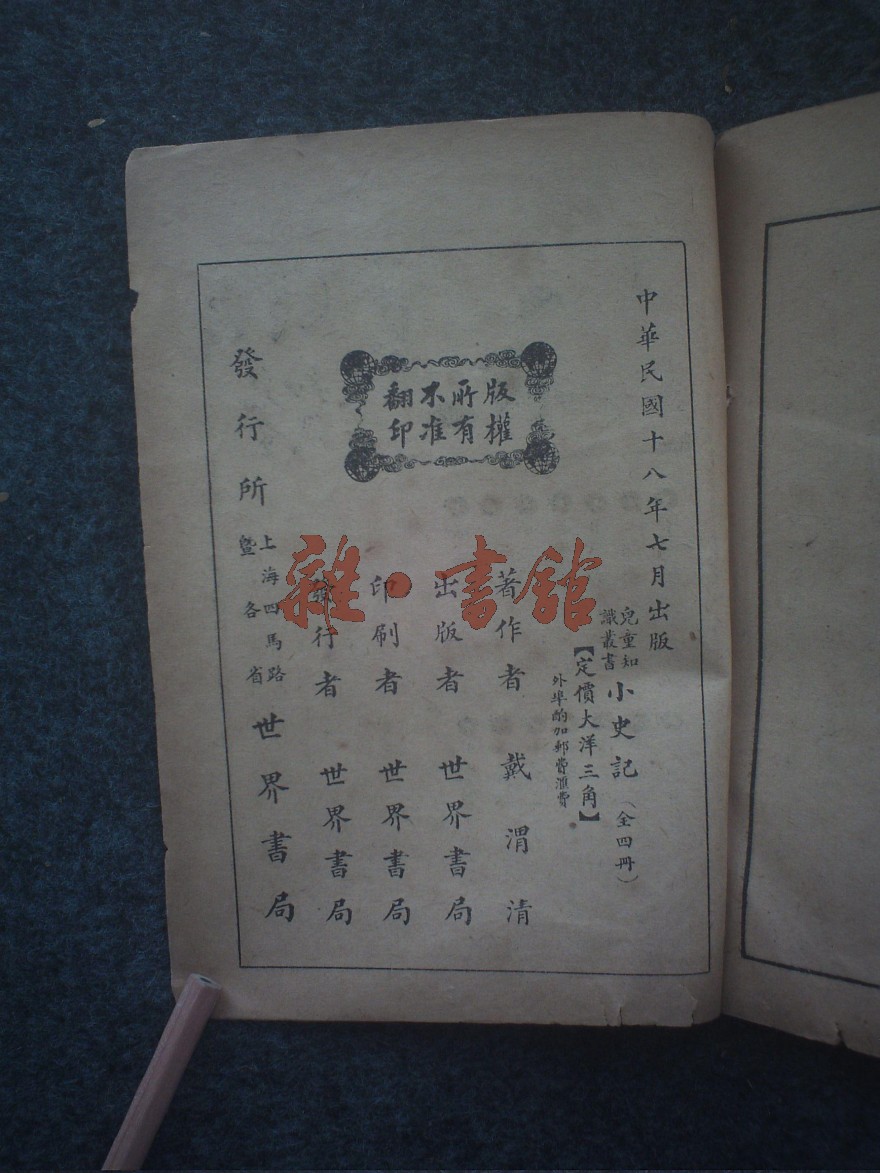 中華民國十八年七月出版
兒童知
識叢書
小史記
（全四冊）
【定價大洋三角】
外埠酌加郵費滙費
版權
所有
不准
翻印
著作者 戴渭清
出版者 世界書局
印刷者 世界書局
發行者 世界書局
發行所
上海四馬路
曁各省
世界書局
雜·書館